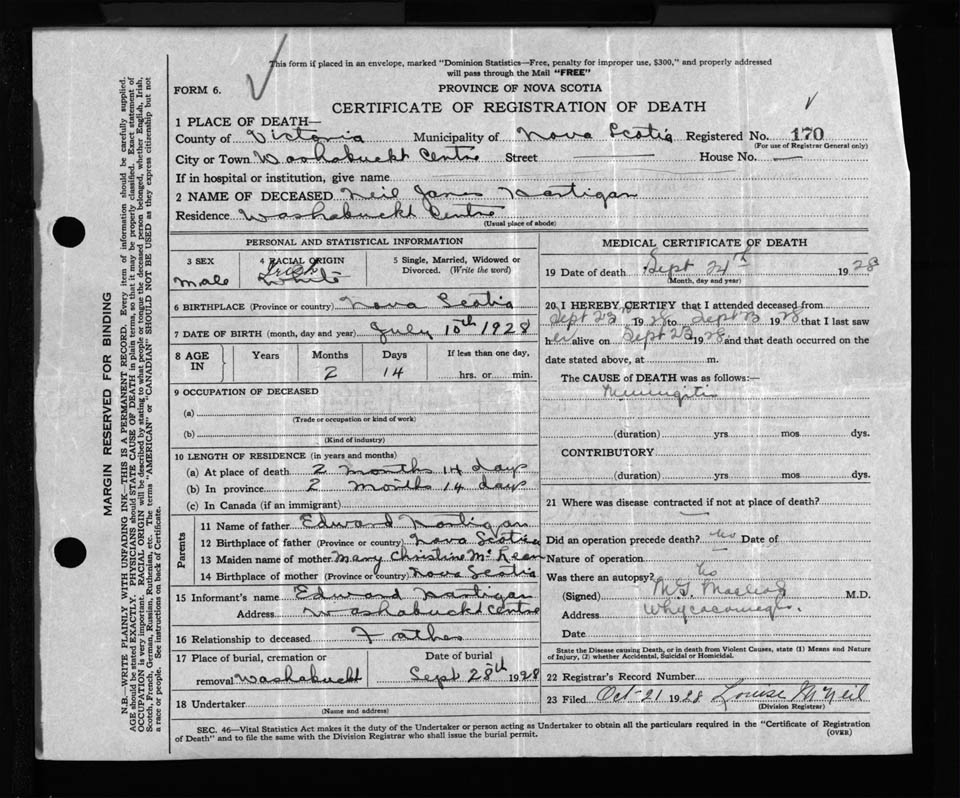 This form if placed in an envelope, marked "Dominion Statistics—Free, penalty for improper use, $300," and properly addressed
will pass through the Mail "FREE"
FORM 6.
PROVINCE OF NOVA SCOTIA
CERTIFICATE OF REGISTRATION OF DEATH
1 PLACE OF DEATH—
County of Victoria Municipality of Nova Scotia Registered No. 170
(For use of Registrar General only)
City or Town Washabuckt Centre Street — House No. —
If in hospital or institution, give name
2 NAME OF DECEASED Neil James Hartigan
Residence Washabuckt Centre
(Usual place of abode)
PERSONAL AND STATISTICAL INFORMATION
3 SEX 4 RACIAL ORIGIN 5 Single, Married, Widowed or
Divorced. (Write the word)
male Irish White
6 BIRTHPLACE (Province or country) Nova Scotia
7 DATE OF BIRTH (month, day and year) July 10th 1928
8 AGE IN Years Months Days If less than one day,
2 14 hrs. or min.
9 OCCUPATION OF DECEASED
(a)
(Trade or occupation or kind of work)
(b)
(Kind of industry)
10 LENGTH OF RESIDENCE (in years and months)
(a) At place of death 2 months 14 days
(b) In province 2 months 14 days
(c) In Canada (if an immigrant)
Parents
11 Name of father Edward Hartigan
12 Birthplace of father (Province or country) Nova Scotia
13 Maiden name of mother Mary Christine McLean
14 Birthplace of mother (Province or country) Nova Scotia
15 Informant's name Edward Hartigan
Address Washabuckt Centre
16 Relationship to deceased Father
17 Place of burial, cremation or Date of burial
removal Washabuckt Sept 28th 1928
18 Undertaker
(Name and address)
MEDICAL CERTIFICATE OF DEATH
19 Date of death Sept 24th 1928
(Month, day and year)
20 I HEREBY CERTIFY that I attended deceased from
Sept 23 1928 to Sept 23 1928 that I last saw
h alive on Sept 23 1928 and that death occurred on the
date stated above, at m.
The CAUSE of DEATH was as follows:—
Meningitis
(duration) yrs mos dys.
CONTRIBUTORY
(duration) yrs mos dys.
21 Where was disease contracted if not at place of death?
—
Did an operation precede death? No Date of
Nature of operation
Was there an autopsy? No
(Signed) M.G. MacLeod M.D.
Address Whycocomagh.
Date
State the Disease causing Death, or in death from Violent Causes, state (1) Means and Nature
of Injury, (2) whether Accidental, Suicidal or Homicidal.
22 Registrar's Record Number
23 Filed Oct-21 1928 Louise McNeil
(Division Registrar)
SEC. 46—Vital Statistics Act makes it the duty of the Undertaker or person acting as Undertaker to obtain all the particulars required in the "Certificate of Registration
of Death" and to file the same with the Division Registrar who shall issue the burial permit.
(OVER)
MARGIN RESERVED FOR BINDING
N.B.—WRITE PLAINLY WITH UNFADING INK—THIS IS A PERMANENT RECORD. Every item of information should be carefully supplied.
AGE should be stated EXACTLY. PHYSICIANS should STATE CAUSE OF DEATH in plain terms, so that it may be properly classified. Exact statement of
OCCUPATION is very important. RACIAL ORIGIN will be described by stating to what people or tongue the deceased person belonged, whether English, Irish,
Scotch, French, German, Russian, Ruthenian, etc. The terms "AMERICAN" or "CANADIAN" SHOULD NOT BE USED as they express citizenship but not
a race or people. See instructions on back of Certificate.